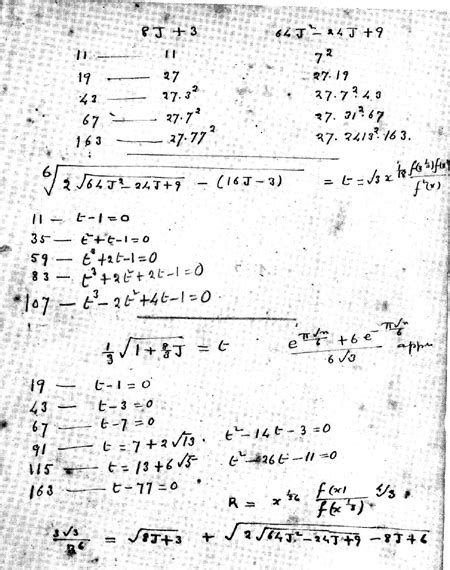 8J+3 64J²-24J+9
11 — 11 7²
19 — 27 27.19
43 — 27.3² 27.7².43
67 — 27.7² 27.31².67
163 — 27.77² 27.2413².163.
⁶√(2√(64J²-24J+9) - (16J-3)) = t = √3 x^{1/18} f(x^{1/3})f(x³)/f²(x)
11 — t-1=0
35 — t²+t-1=0
59 — t³+2t-1=0
83 — t³+2t²+2t-1=0
107 — t³-2t²+4t-1=0
1/3 √(1+8/3 J) = t (e^{π√n/6} + 6e^{-π√n/6})/(6√3)
19 — t-1=0
43 — t-3=0
67 — t-7=0
91 — t=7+2√13. t²-14t-3=0
115 — t=13+6√5 t²-26t-11=0
163 — t-77=0
R = x^{1/36} f(x)/f(x^{1/3})
3√3/R⁶ = √(8J+3) + √(2√(64J²-24J+9) - 8J+6)